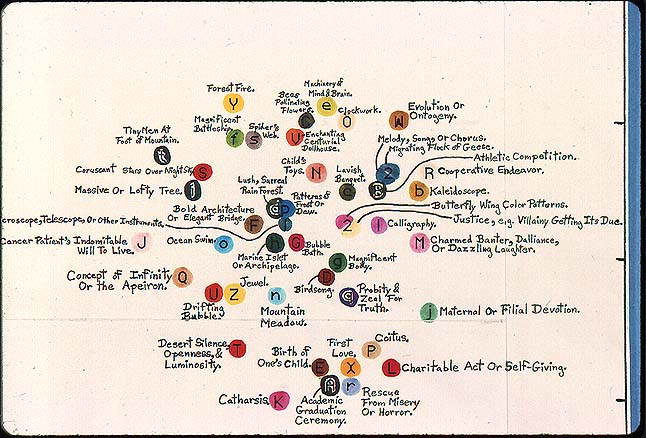 Machinery of
Mind & Brain.
Forest Fire.
Bees
Pollinating
Flowers.
Y
e
Clockwork.
O
W
Evolution Or
Ontogeny.
Magnificent
Battleship.
Spider's
Web.
f
s
U
Enchanting
Centurial
Dollhouse.
Tiny Men At
Foot of Mountain.
t
Melody, Songs Or Chorus.
Migrating Flock of Geese.
Athletic Competition.
Coruscant Stars Over Night Sky.
S
Child's
Toys.
N
Lavish
Banquet.
2
R
Cooperative Endeavor.
Massive Or Lofty Tree.
Lush, Surreal
Rain Forest.
Patterns of
Frost Or
Dew.
B
b
Kaleidoscope.
P
Butterfly Wing Color Patterns.
Bold Architecture
Or Elegant Bridge.
F
croscope, Telescope, Or Other Instruments.
2
l
Calligraphy.
Justice, e.g. Villainy Getting Its Due.
Cancer Patient's Indomitable
Will To Live.
J
Ocean Swim.
o
h
G
Bubble
Bath.
M
Charmed Banter, Dalliance,
Or Dazzling Laughter.
Marine Islet
Or Archipelago.
g
Magnificent
Body.
Concept of Infinity
Or The Apeiron.
Q
Jewel.
Birdsong.
D
U
Z
n
q
Probity &
Zeal For
Truth.
Drifting
Bubble.
Mountain
Meadow.
j
Maternal Or Filial Devotion.
Desert Silence,
Openness, &
Luminosity.
T
Birth of
One's Child.
First
Love.
Coitus.
P
E
X
L
Charitable Act Or Self-Giving.
Catharsis.
K
A
r
Academic
Graduation
Ceremony.
Rescue
From Misery
Or Horror.